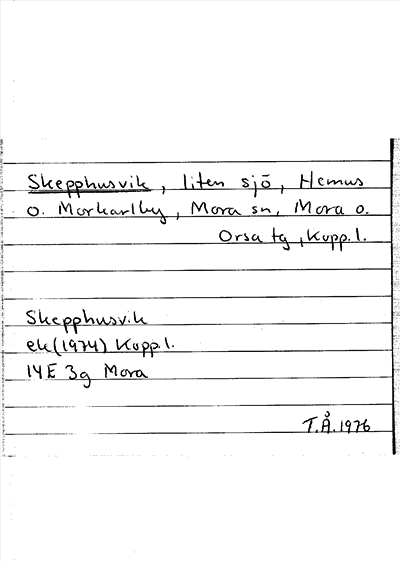 Skepphusvik, liten sjö, Hemus
o. Morkarlby, Mora sn, Mora o.
Orsa tg, Kopp.l.
Skepphusvik
ek(1974) Kopp.l.
14E 3g Mora
T.Å.1976